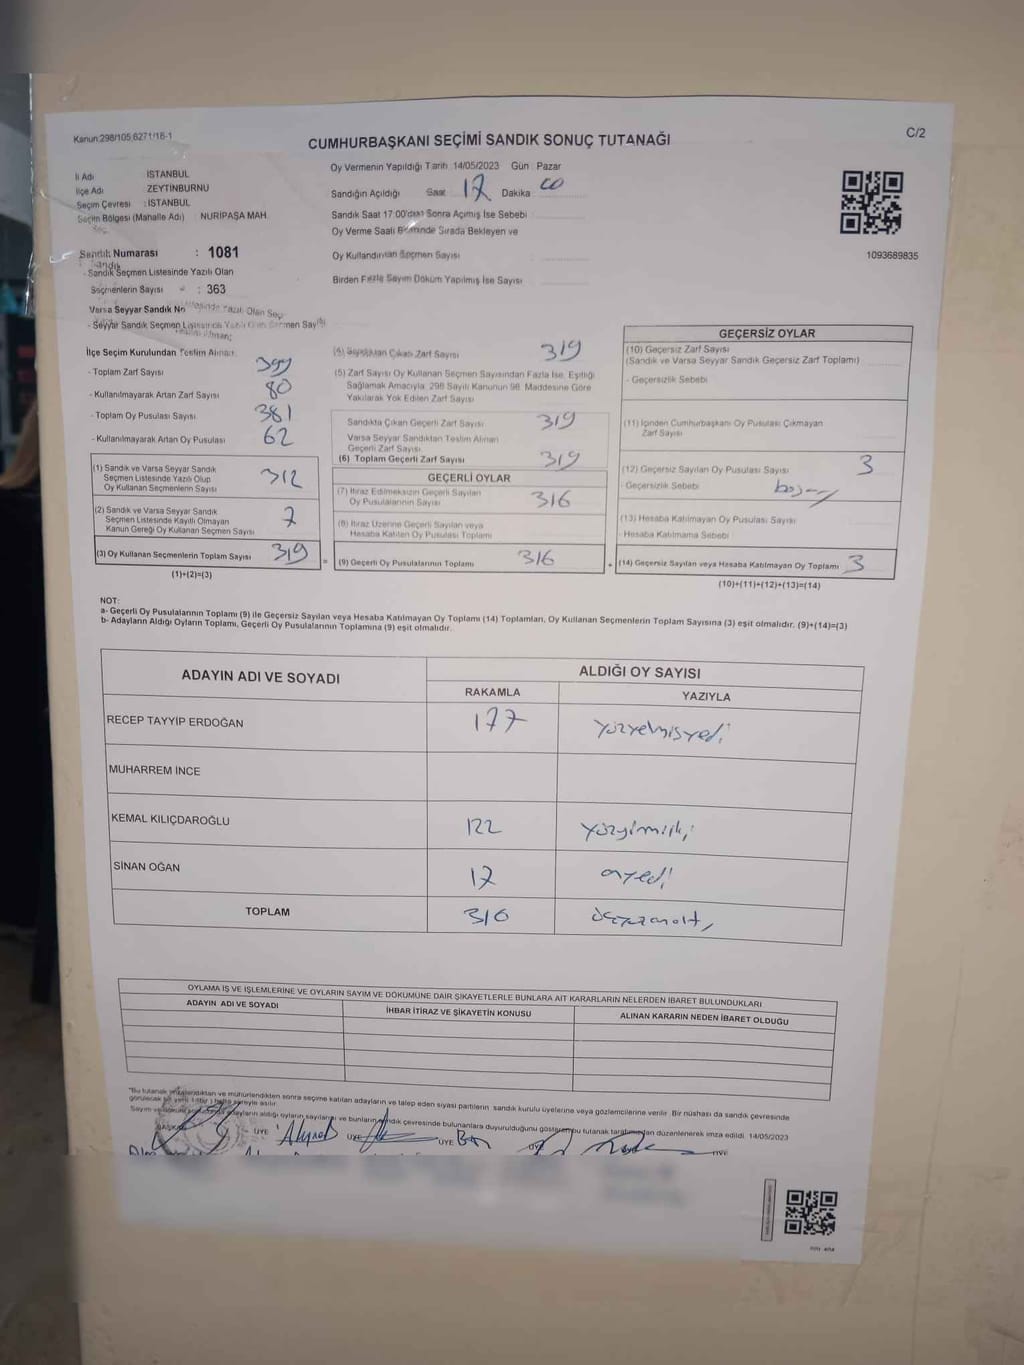 Kanun:298/105,6271/16-1
C/2
CUMHURBAŞKANI SEÇİMİ SANDIK SONUÇ TUTANAĞI
İl Adı İSTANBUL
İlçe Adı ZEYTİNBURNU
Seçim Çevresi : İSTANBUL
Seçim Bölgesi (Mahalle Adı) NURİPAŞA MAH.
Sandık Numarası : 1081
Sandık Seçmen Listesinde Yazılı Olan
Seçmenlerin Sayısı : 363
Varsa Seyyar Sandık No
- Seyyar Sandık Seçmen Listesinde Yazılı Olan Seçmen Sayısı
Oy Vermenin Yapıldığı Tarih 14/05/2023 Gün Pazar
Sandığın Açıldığı Saat 17 Dakika 00
Sandık Saat 17:00'dan Sonra Açmış İse Sebebi
Oy Verme Saati Bitiminde Sırada Bekleyen ve
Oy Kullandırılan Seçmen Sayısı
Birden Fazla Sayım Döküm Yapılmış İse Sayısı
1093689835
İlçe Seçim Kurulundan Teslim Alınan:
- Toplam Zarf Sayısı 399
- Kullanılmayarak Artan Zarf Sayısı 80
- Toplam Oy Pusulası Sayısı 381
- Kullanılmayarak Artan Oy Pusulası 62
(1) Sandık ve Varsa Seyyar Sandık
Seçmen Listesinde Yazılı Olup
Oy Kullanan Seçmenlerin Sayısı 312
(2) Sandık ve Varsa Seyyar Sandık
Seçmen Listesinde Kayıtlı Olmayan
Kanun Gereği Oy Kullanan Seçmen Sayısı 7
(3) Oy Kullanan Seçmenlerin Toplam Sayısı 319
(1)+(2)=(3)
(4) Sandıktan Çıkan Zarf Sayısı 319
(5) Zarf Sayısı Oy Kullanan Seçmen Sayısından Fazla İse, Eşitliği
Sağlamak Amacıyla, 298 Sayılı Kanunun 98. Maddesine Göre
Yakılarak Yok Edilen Zarf Sayısı
Sandıkta Çıkan Geçerli Zarf Sayısı 319
Varsa Seyyar Sandıktan Teslim Alınan
Geçerli Zarf Sayısı
(6) Toplam Geçerli Zarf Sayısı 319
GEÇERLİ OYLAR
(7) İtiraz Edilmeksizin Geçerli Sayılan
Oy Pusulalarının Sayısı 316
(8) İtiraz Üzerine Geçerli Sayılan veya
Hesaba Katılan Oy Pusulası Toplamı
= (9) Geçerli Oy Pusulalarının Toplamı 316
GEÇERSİZ OYLAR
(10) Geçersiz Zarf Sayısı
(Sandık ve Varsa Seyyar Sandık Geçersiz Zarf Toplamı)
- Geçersizlik Sebebi
(11) İçinden Cumhurbaşkanı Oy Pusulası Çıkmayan
Zarf Sayısı
(12) Geçersiz Sayılan Oy Pusulası Sayısı 3
- Geçersizlik Sebebi
(13) Hesaba Katılmayan Oy Pusulası Sayısı
- Hesaba Katılmama Sebebi
+ (14) Geçersiz Sayılan veya Hesaba Katılmayan Oy Toplamı 3
(10)+(11)+(12)+(13)=(14)
NOT:
a- Geçerli Oy Pusulalarının Toplamı (9) ile Geçersiz Sayılan veya Hesaba Katılmayan Oy Toplamı (14) Toplamları, Oy Kullanan Seçmenlerin Toplam Sayısına (3) eşit olmalıdır. (9)+(14)=(3)
b- Adayların Aldığı Oyların Toplamı, Geçerli Oy Pusulalarının Toplamına (9) eşit olmalıdır.
ADAYIN ADI VE SOYADI
ALDIĞI OY SAYISI
RAKAMLA YAZIYLA
RECEP TAYYİP ERDOĞAN 177 yüzyetmişyedi
MUHARREM İNCE
KEMAL KILIÇDAROĞLU 122 yüzyirmiiki
SİNAN OĞAN 17 onyedi
TOPLAM 316 üçyüzonaltı
OYLAMA İŞ VE İŞLEMLERİNE VE OYLARIN SAYIM VE DÖKÜMÜNE DAİR ŞİKAYETLERLE BUNLARA AİT KARARLARIN NELERDEN İBARET BULUNDUKLARI
ADAYIN ADI VE SOYADI
İHBAR İTİRAZ VE ŞİKAYETİN KONUSU
ALINAN KARARIN NEDEN İBARET OLDUĞU
"Bu tutanak imzalandıktan ve mühürlendikten sonra seçime katılan adayların ve talep eden siyasi partilerin sandık kurulu üyelerine veya gözlemcilerine verilir. Bir nüshası da sandık çevresinde
görülecek bir yere 1 (bir) hafta süreyle asılır.
adayların aldığı oyların sayılarını ve bunların sandık çevresinde bulunanlara duyurulduğunu gösteren bu tutanak tarafımızdan düzenlenerek imza edildi. 14/05/2023
BAŞKAN ÜYE ÜYE ÜYE ÜYE ÜYE